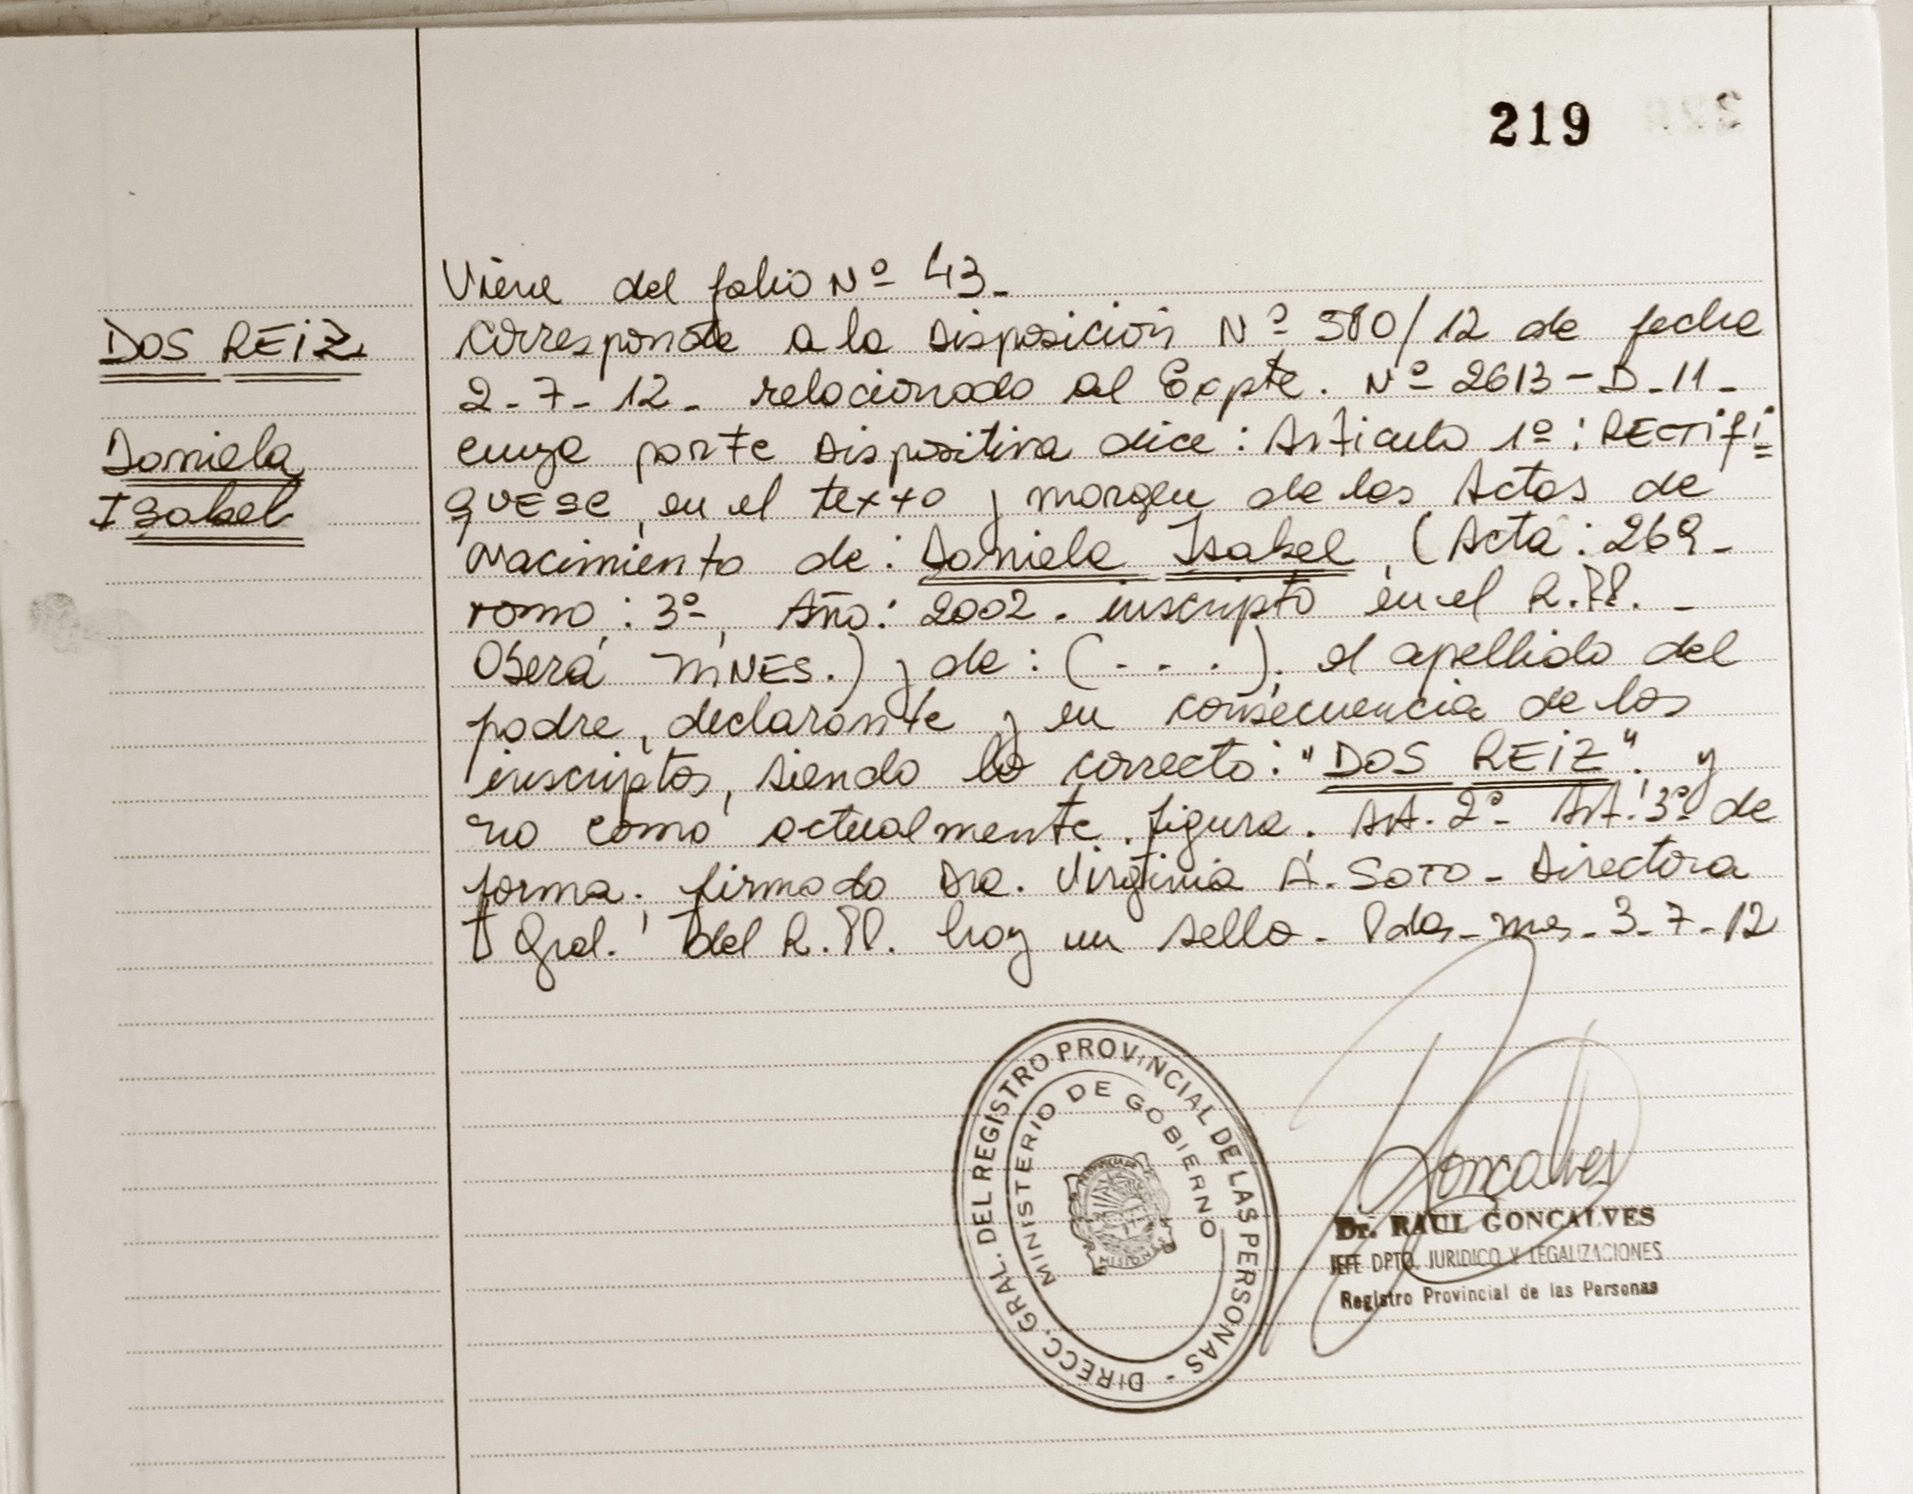 219
Viene del folio Nº 43-
DOS REIZ
Corresponde a la Disposición Nº 580/12 de fecha
2-7-12- relacionado al Expte. Nº 2613-D-11-
Daniela
cuya parte Dispositiva dice: Articulo 1º: RECTIFI=
Isabel
QUESE, en el texto y margen de las Actas de
Nacimiento de: Daniela Isabel, (Acta: 269-
Tomo: 3º, Año: 2002. inscripto en el R.PP.-
Oberá MNES.) y de: (....), el apellido del
padre, declarante y en consecuencia de los
inscriptos, siendo lo correcto: "DOS REIZ". y
no como actualmente figura. Art. 2º- Art. 3º de
forma. firmado Dra. Virginia A. SOTO- Directora
Gral. del R.PP. hay un sello- Pdas-mes-3-7-12
DIRECC. GRAL. DEL REGISTRO PROVINCIAL DE LAS PERSONAS -
MINISTERIO DE GOBIERNO
MISIONES
Goncalves
Dr. RAUL GONCALVES
JEFE DPTO. JURIDICO Y LEGALIZACIONES
Registro Provincial de las Personas